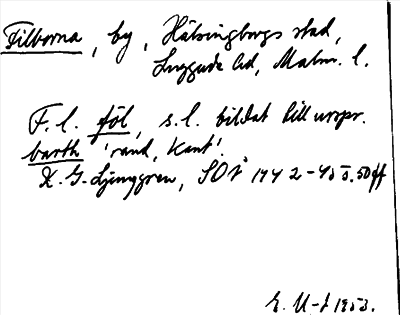 Filborna, by, Hälsingborgs stad,
Luggude hd, Malm. l.
F. l. föl, s. l. bildat till urspr.
barth 'rand, kant'.
K. G. Ljunggren, SOÅ 1942-43 s. 50 ff
E. U-d 1953.